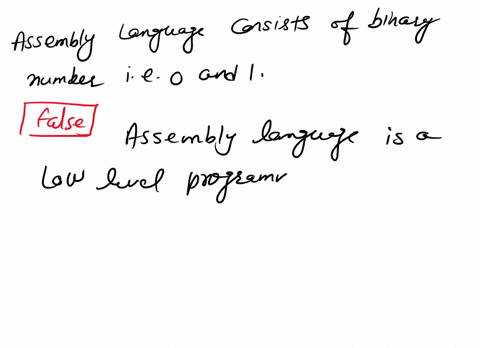 Assembly Language Consists of binary
number i.e. 0 and 1.
False
Assembly language is a
Low level programm